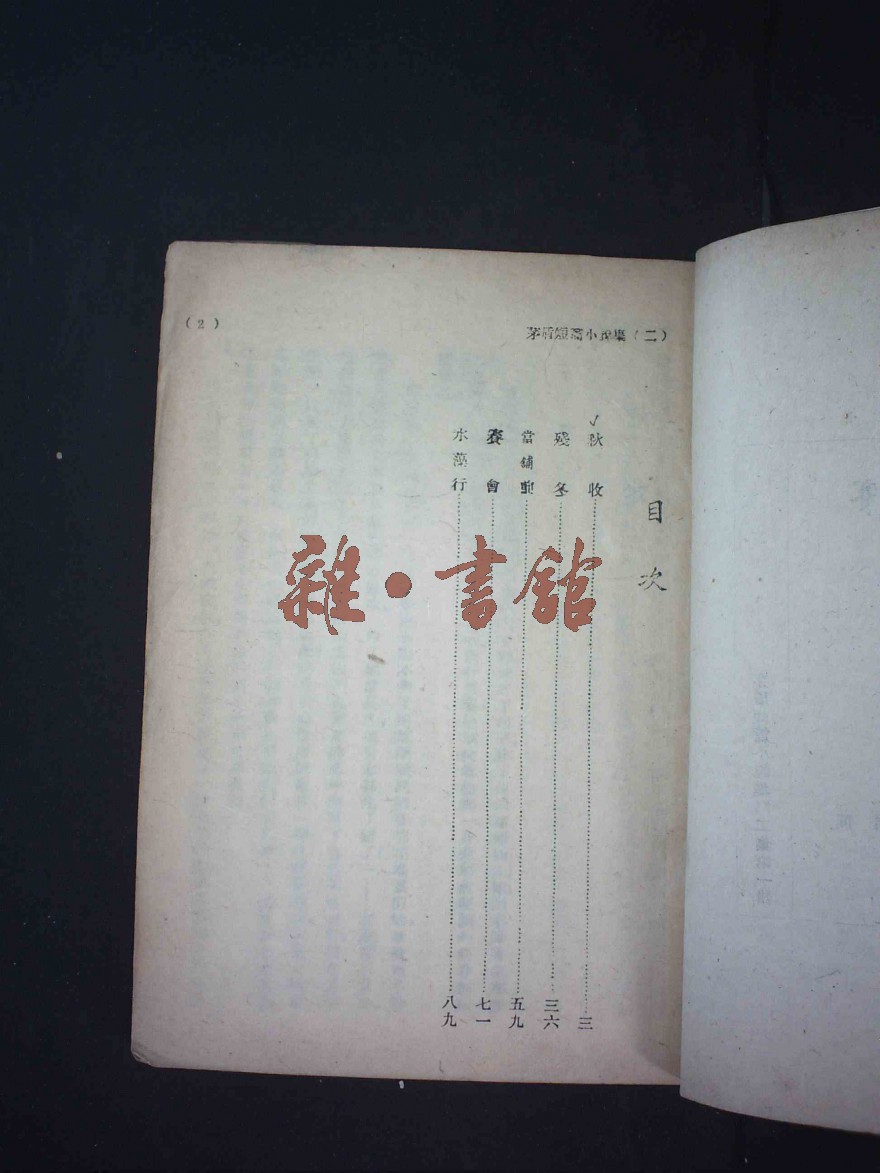 茅盾短篇小說集(二)
(2)
目次
秋收……三
殘冬……三六
當鋪前……五九
賽會……七一
水藻行……八九
雜·書館